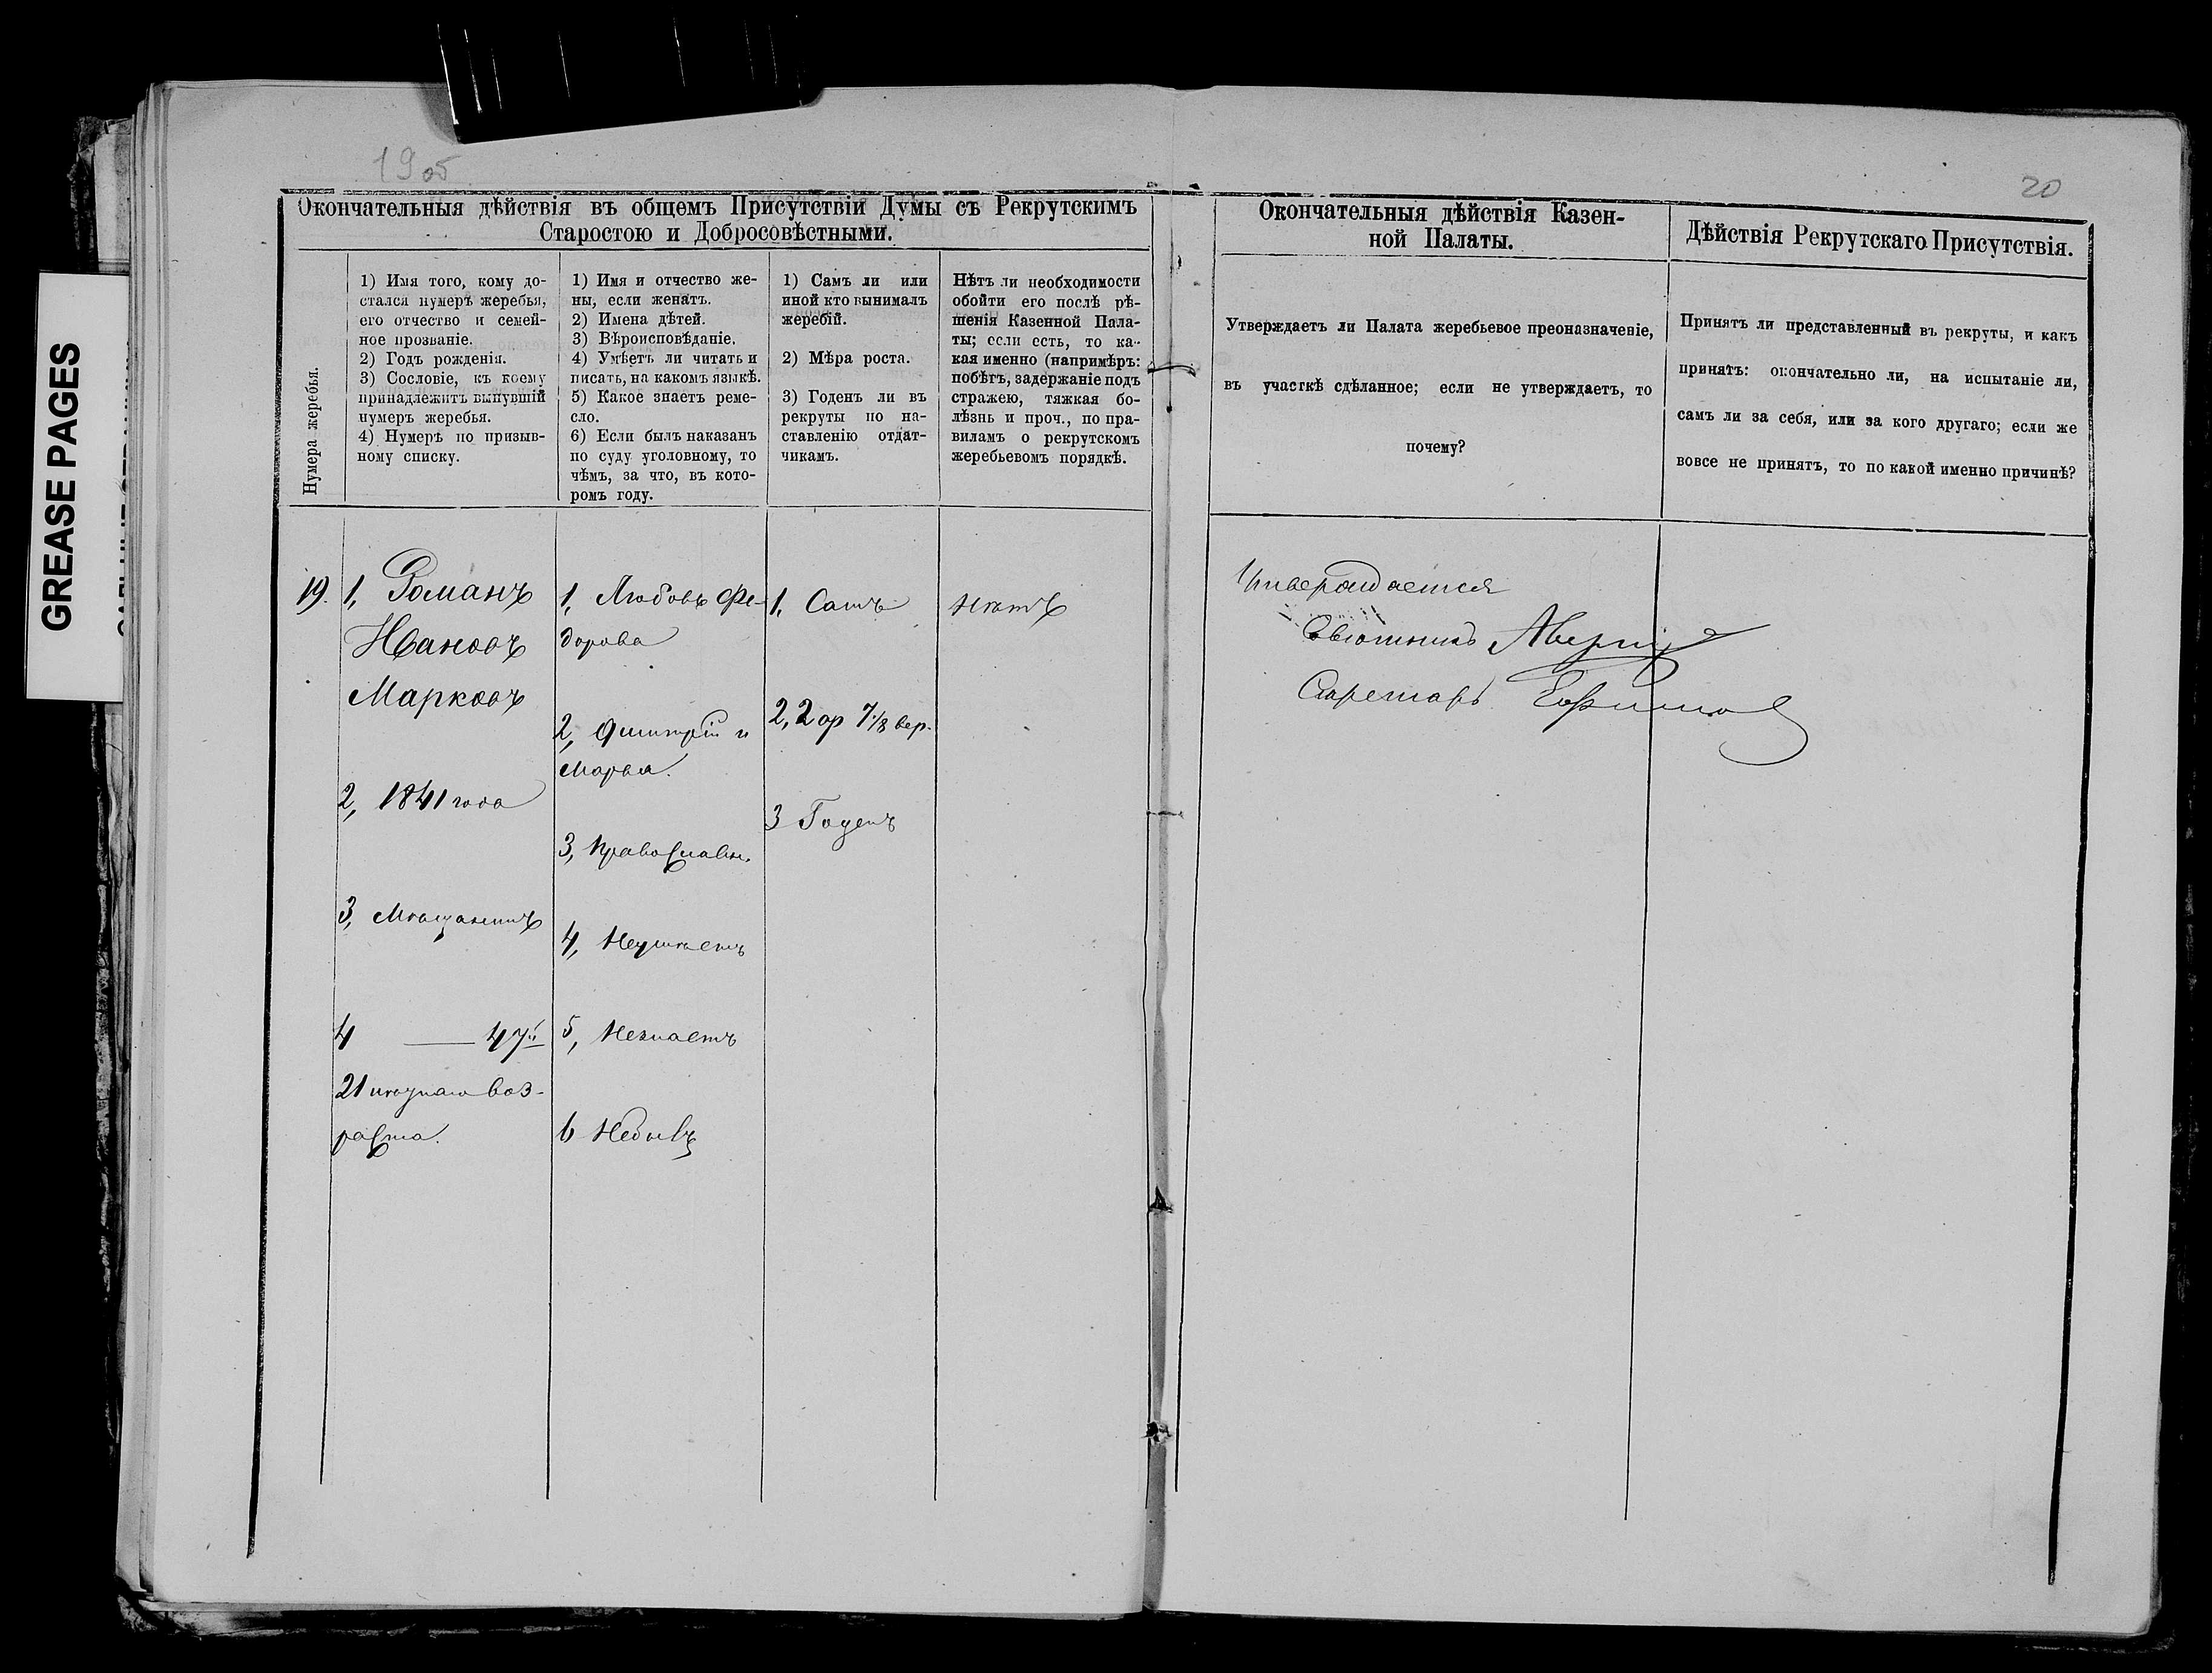 GREASE PAGES
19 об
20
Окончательныя дѣйствія въ общемъ Присутствіи Думы съ Рекрутскимъ
Старостою и Добросовѣстными.
Нумера жеребья.
1) Имя того, кому до-
стался нумеръ жеребья,
его отчество и семей-
ное прозваніе.
2) Годъ рожденія.
3) Сословіе, къ коему
принадлежитъ вынувшій
нумеръ жеребья.
4) Нумеръ по призыв-
ному списку.
1) Имя и отчество же-
ны, если женатъ.
2) Имена дѣтей.
3) Вѣроисповѣданіе.
4) Умѣетъ ли читать и
писать, на какомъ языкѣ.
5) Какое знаетъ реме-
сло.
6) Если былъ наказанъ
по суду уголовному, то
чѣмъ, за что, въ кото-
ромъ году.
1) Самъ ли или
иной кто вынималъ
жеребій.
2) Мѣра роста.
3) Годенъ ли въ
рекруты по на-
ставленію отдат-
чикамъ.
Нѣтъ ли необходимости
обойти его послѣ рѣ-
шенія Казенной Пала-
ты; если есть, то ка-
кая именно (напримѣръ:
побѣгъ, задержаніе подъ
стражею, тяжкая бо-
лѣзнь и проч., по пра-
виламъ о рекрутскомъ
жеребьевомъ порядкѣ.
Окончательныя дѣйствія Казен-
ной Палаты.
Утверждаетъ ли Палата жеребьевое преоназначеніе,
въ участкѣ сдѣланное; если не утверждаетъ, то
почему?
Дѣйствія Рекрутскаго Присутствія.
Принятъ ли представленный въ рекруты, и какъ
принятъ: окончательно ли, на испытаніе ли,
самъ ли за себя, или за кого другаго; если же
вовсе не принятъ, то по какой именно причинѣ?
19.
1, Романъ
Ивановъ
Марковъ
2, 1841 года
3, Мѣщанинъ
4 —— 47й
21 лѣтняго воз-
раста.
1, Любовь Фе-
дорова
2, Дмитрій и
Марья.
3, Православн.
4, Неумѣетъ
5, Незнаетъ
6 Небылъ
1, Самъ
2, 2 ар 7 1/8 вер.
3 Годенъ
Нѣтъ
Утверждается
Совѣтникъ
Секретарь Ефимов